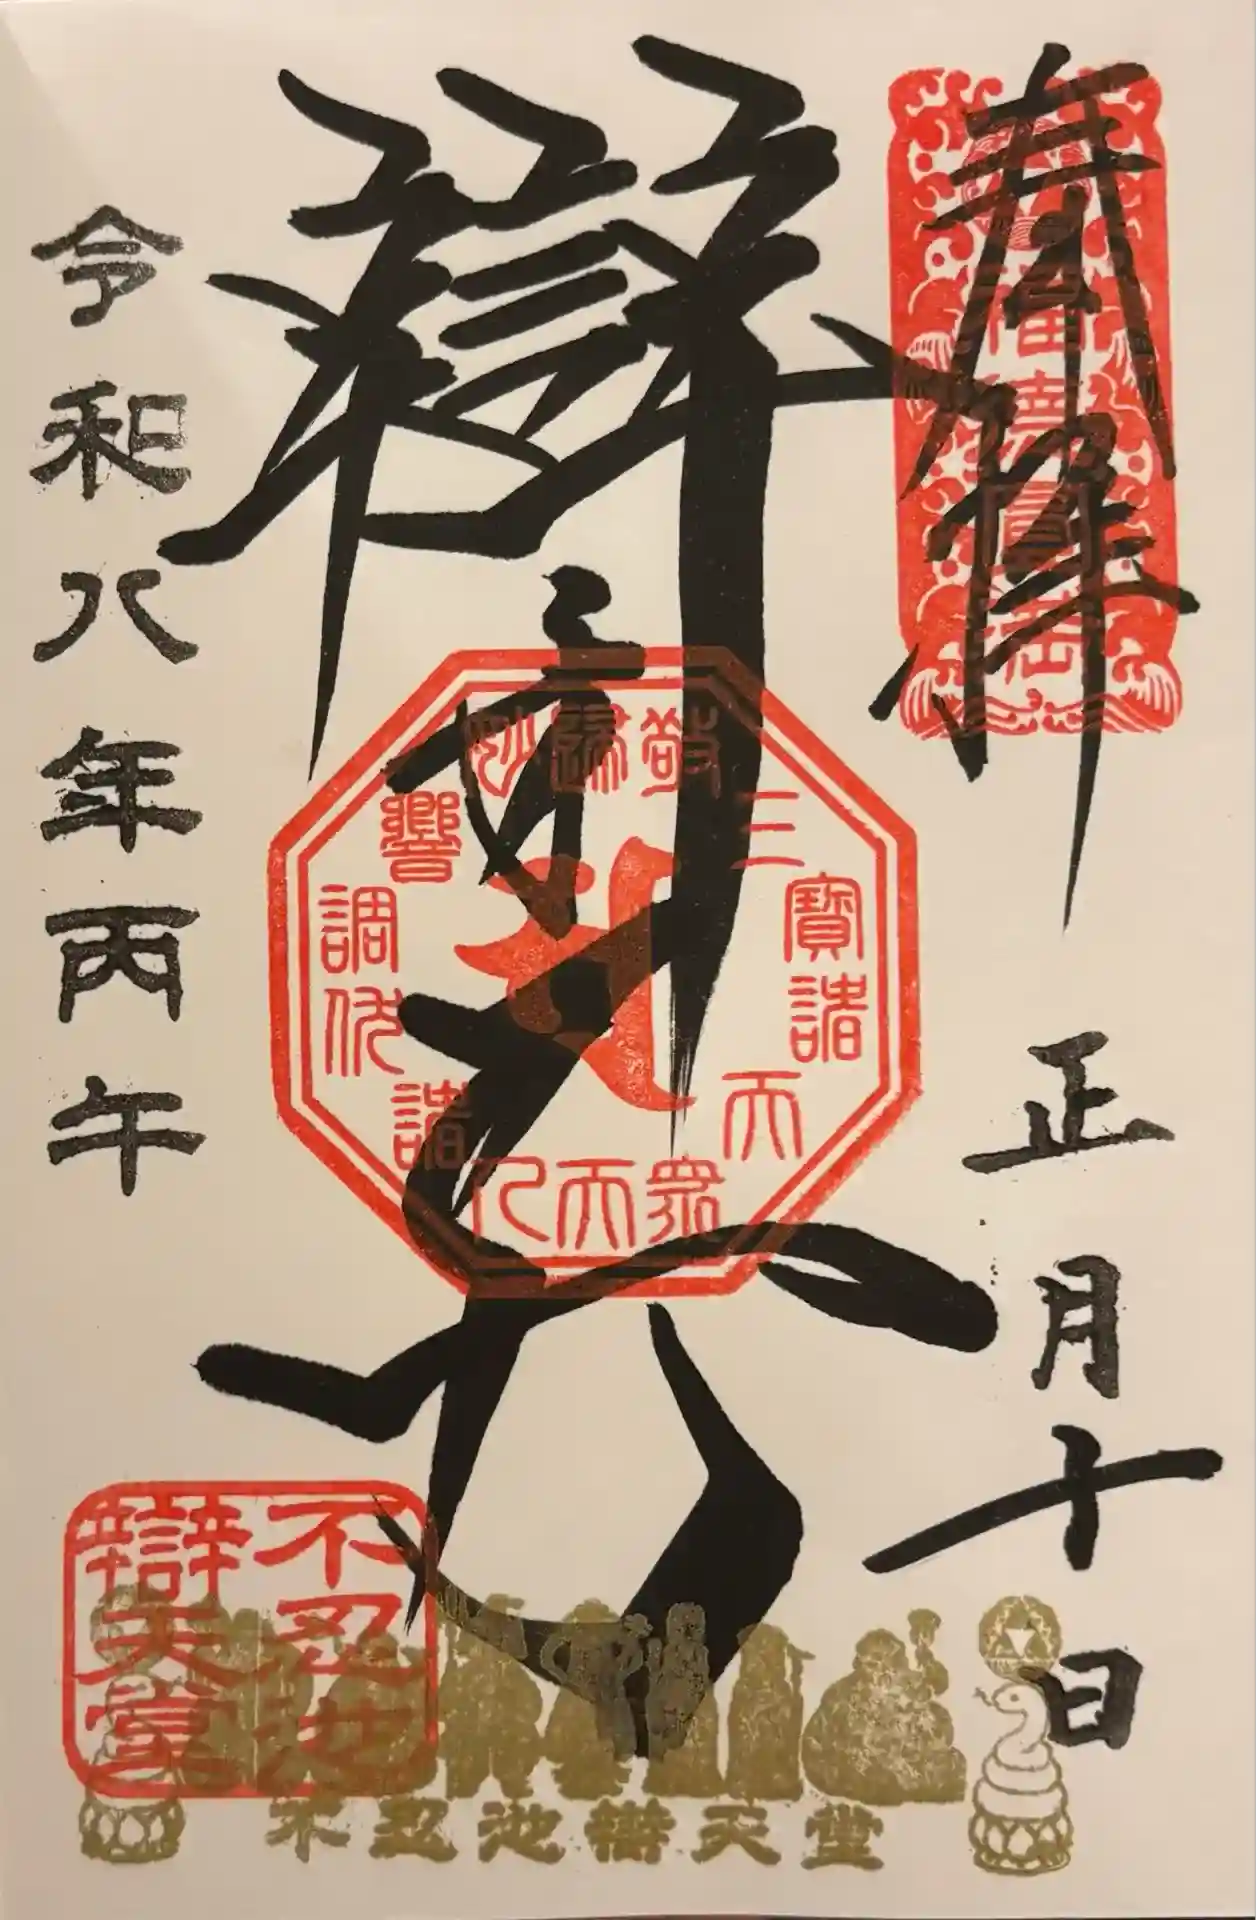 奉拝
正月十日
辯
歸敬三寶諸天衆天人諸伎調響妙
令和八年丙午
不忍池
辯天堂
不忍池辯天堂